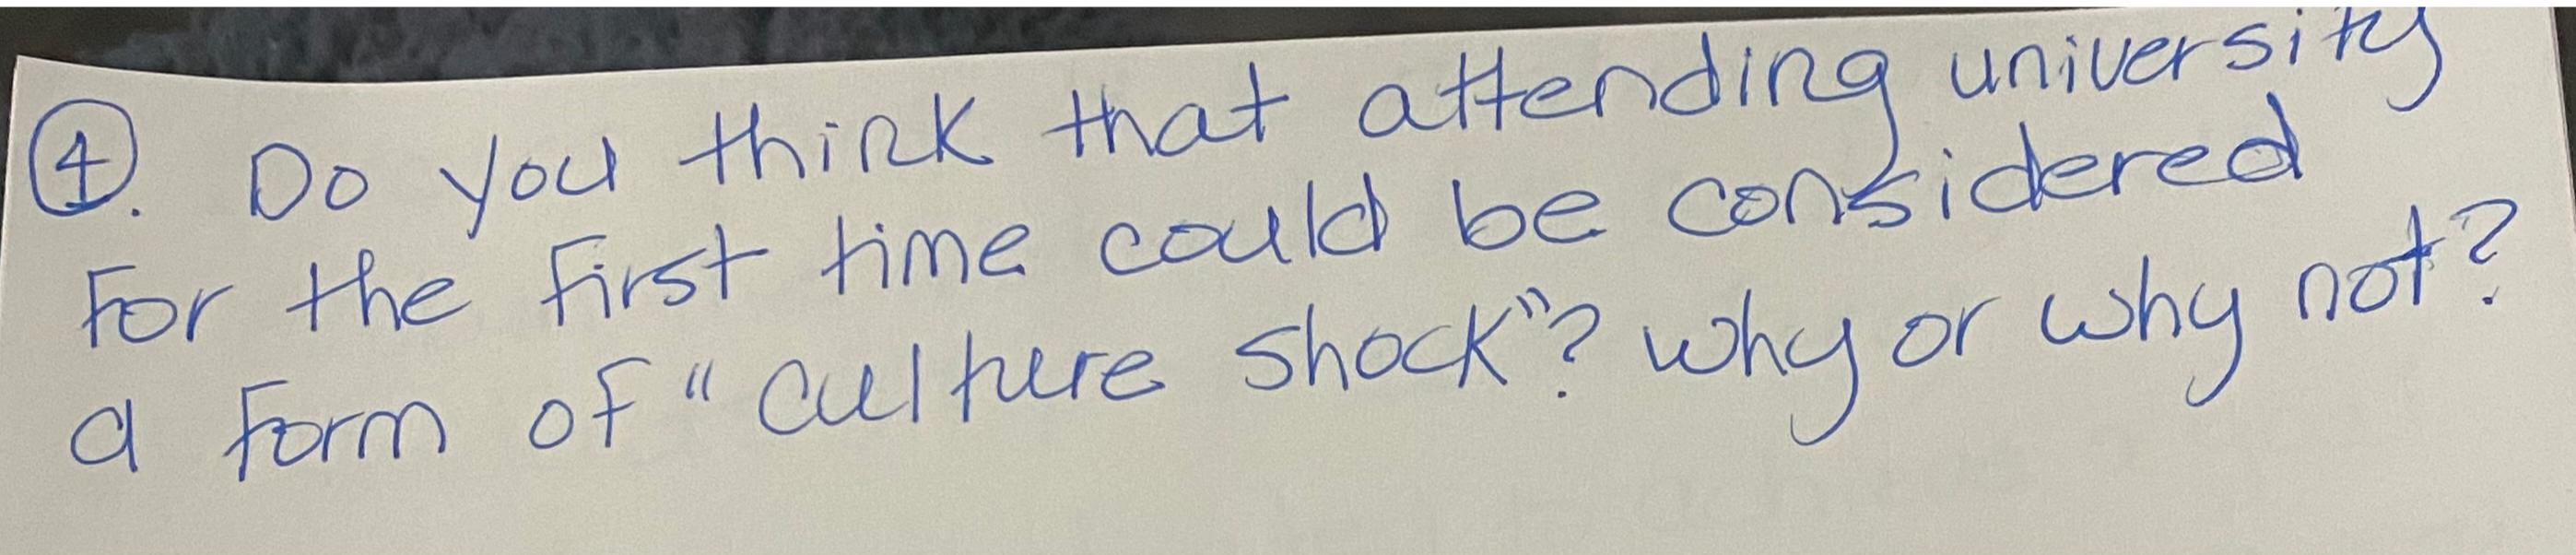 ④. Do you think that attending university
for the first time could be considered
a form of "culture shock"? why or why not?